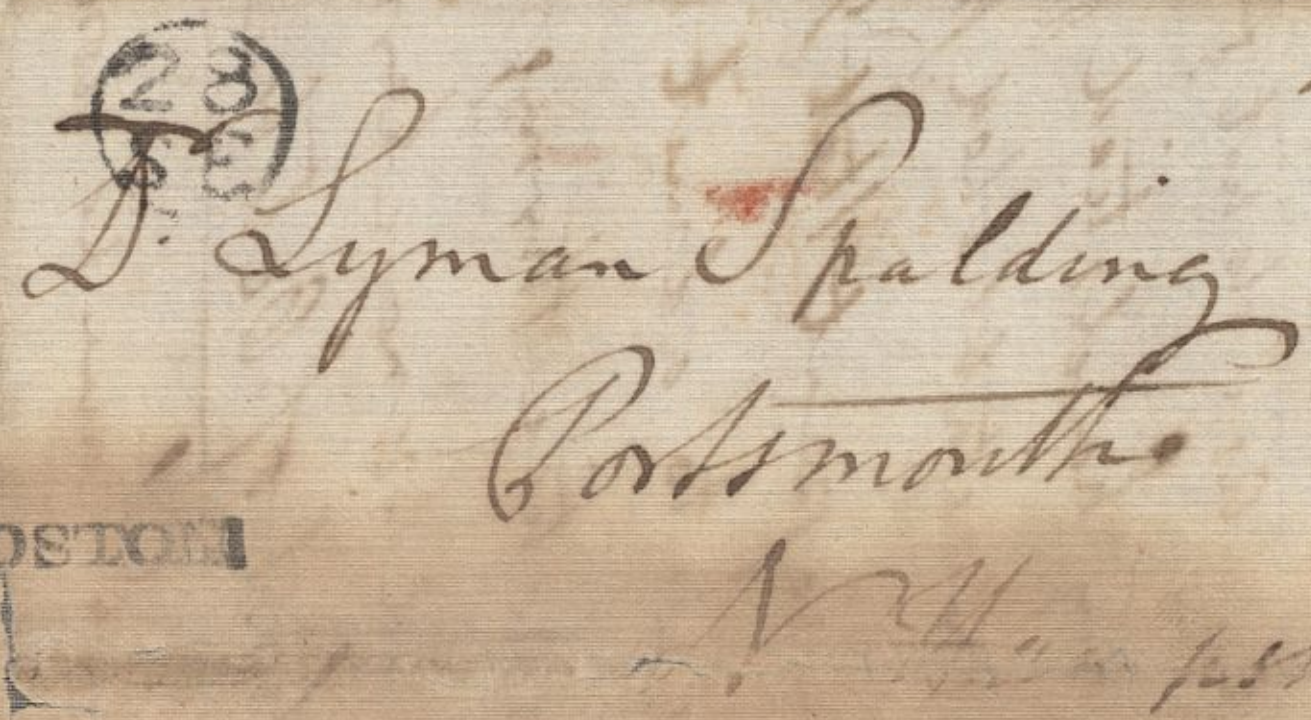 28
SE
Dr. Lyman Spalding
Portsmouth
OSTON
N H